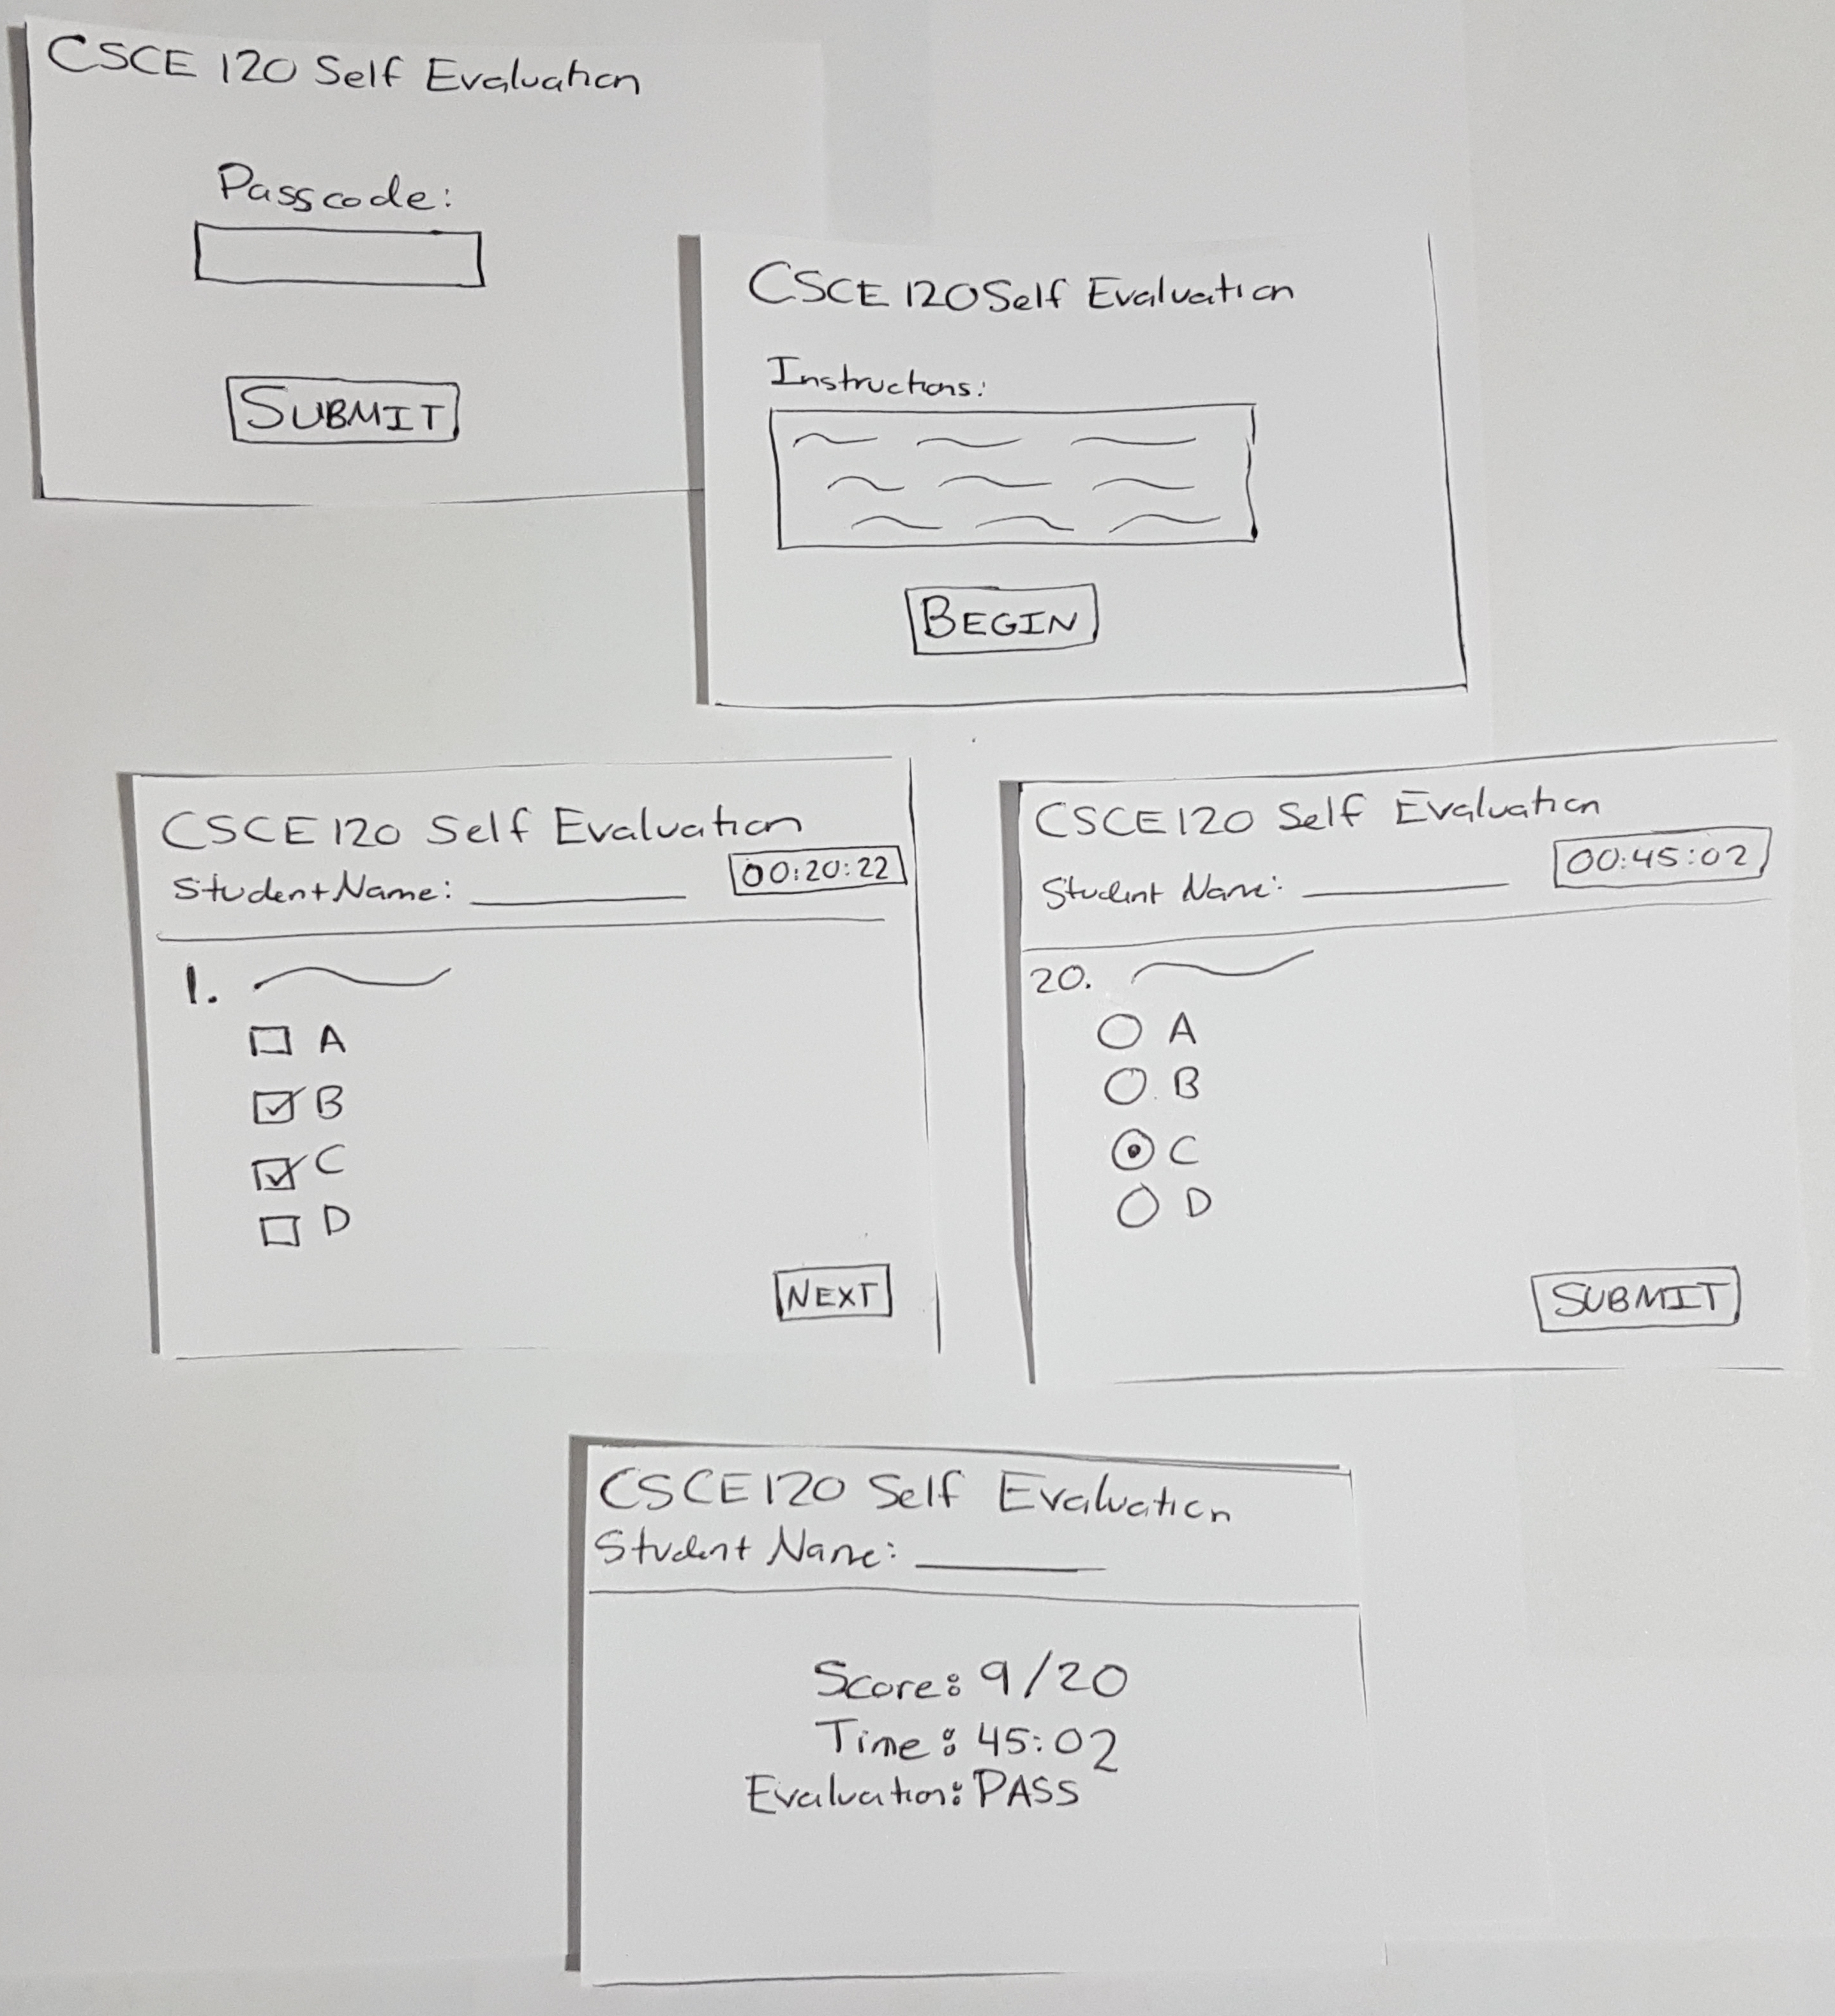 CSCE 120 Self Evaluation
Passcode:
SUBMIT
CSCE 120 Self Evaluation
Instructions:
BEGIN
CSCE 120 Self Evaluation
Student Name:
00:20:22
1.
A
B
C
D
NEXT
CSCE 120 Self Evaluation
Student Name:
00:45:02
20.
A
B
C
D
SUBMIT
CSCE 120 Self Evaluation
Student Name:
Score: 9/20
Time: 45:02
Evaluation: PASS